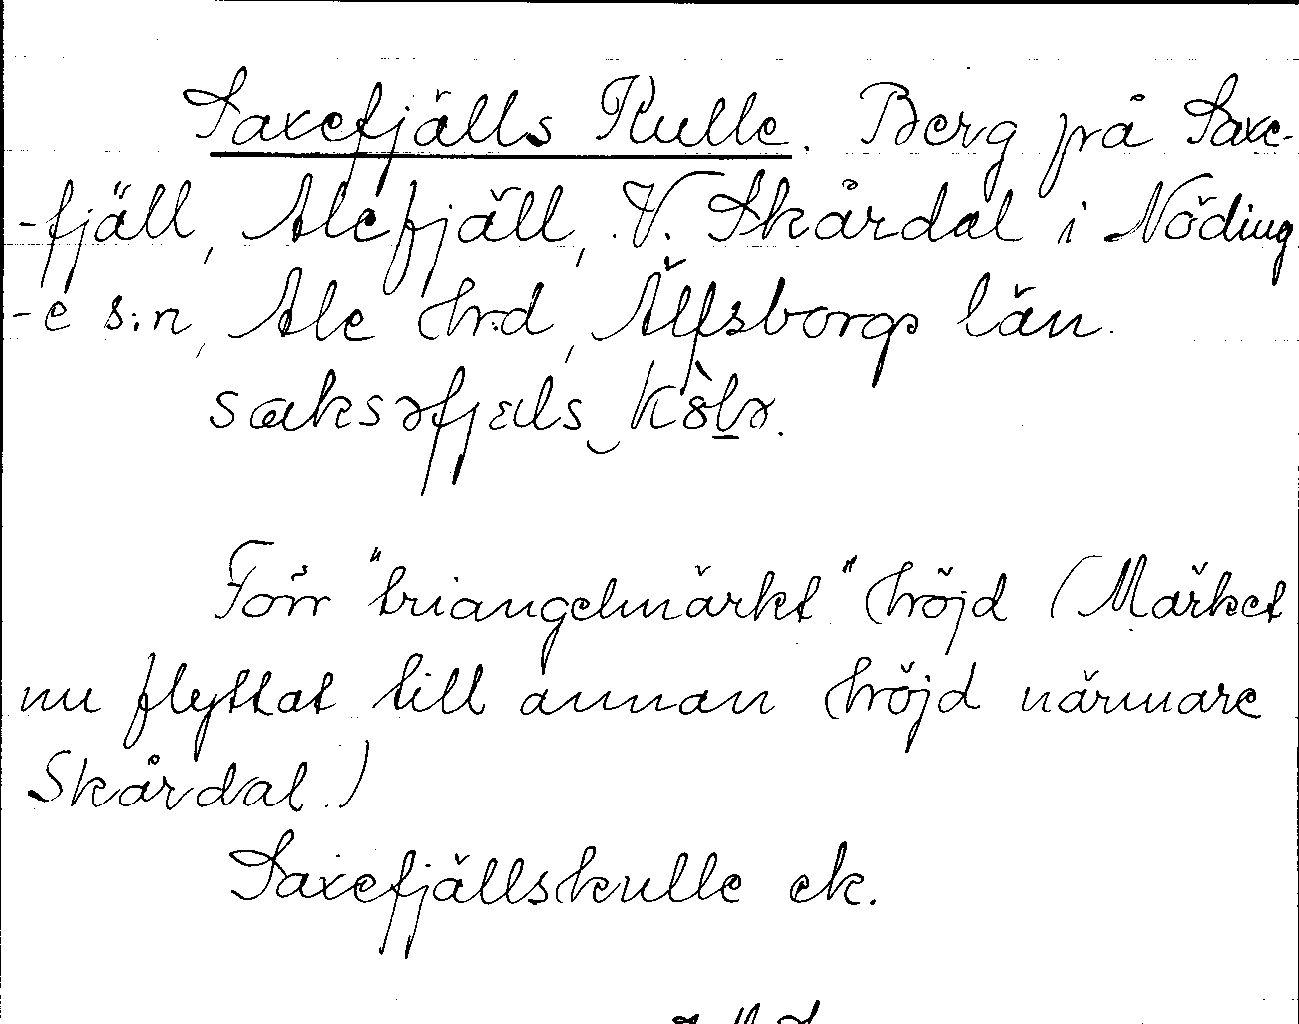 Saxefjälls Kulle. Berg på Saxe-
-fjäll, Alefjäll, V. Skårdal i Nöding
-e s:n, Ale hrd, Älfsborgs län.
saksəfjæls‿
Förr "triangelmärkt" höjd (Märket
nu flyttat till annan höjd närmare
Skårdal.)
Saxefjällskulle ek.